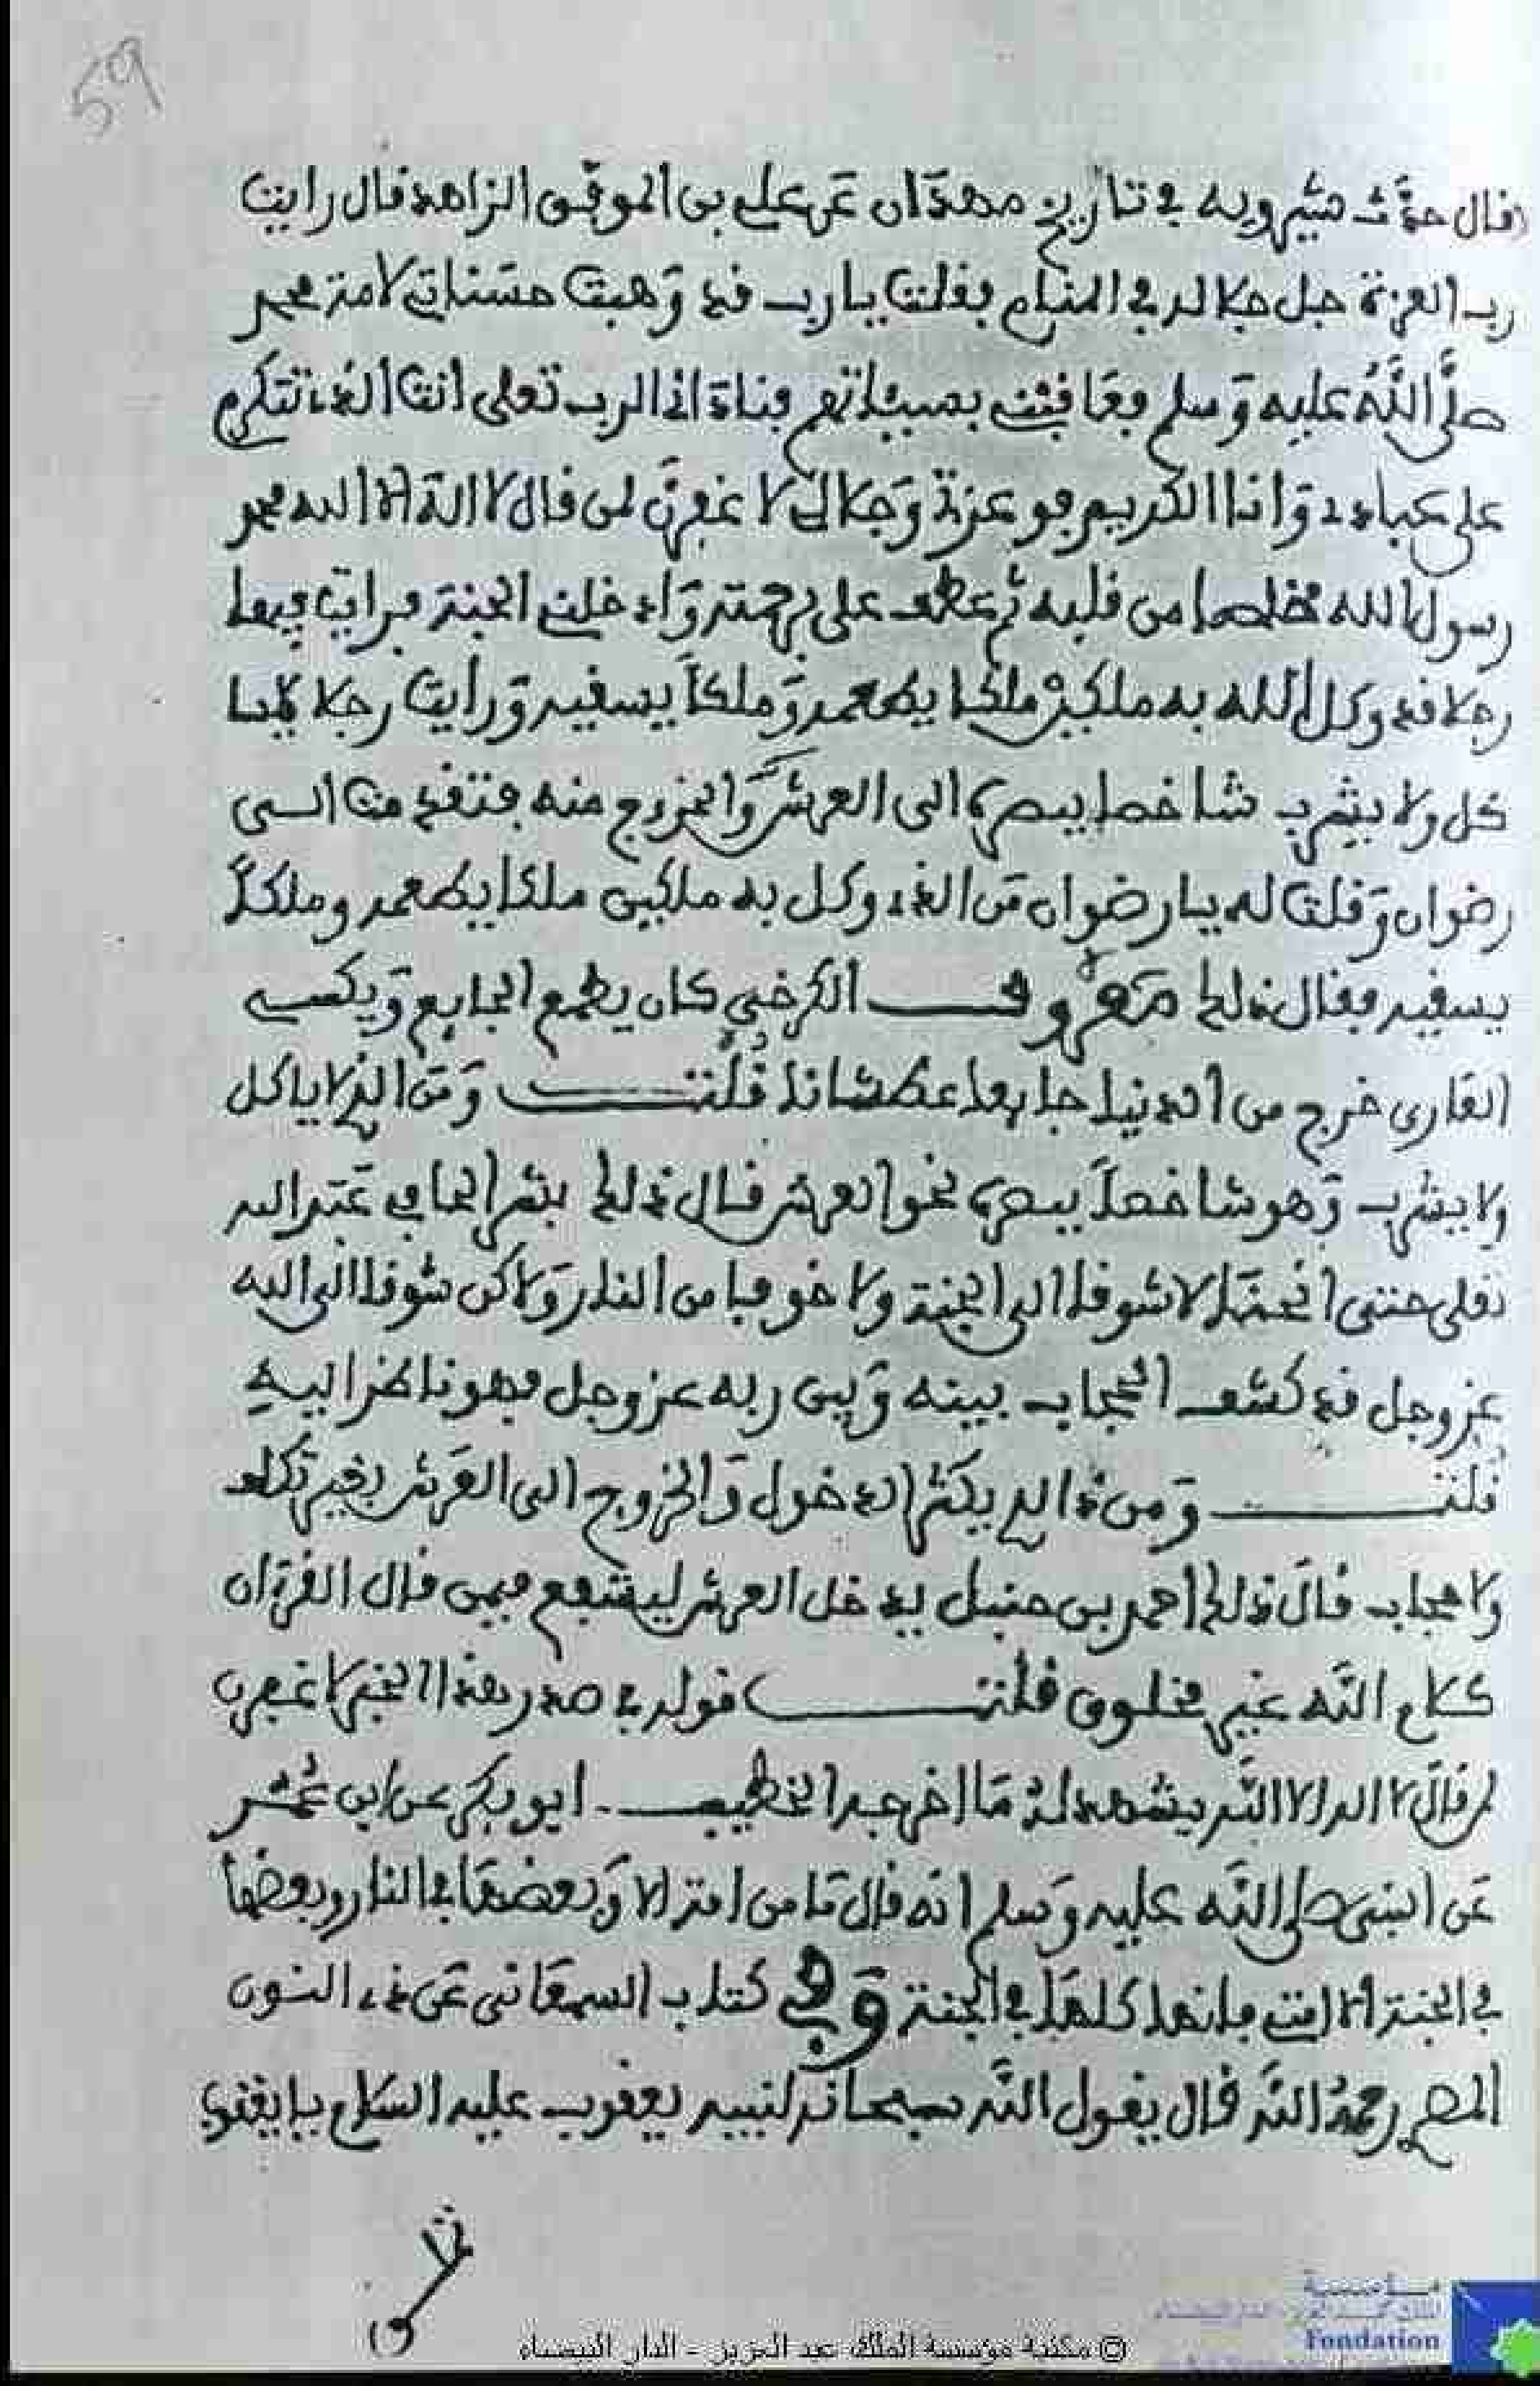 59
قال حدث شيرويه في تاريخ همدان عن علي بن الموفق الزاهد قال رايت
رب العزة جل جلاله في المنام فقلت يا رب قد وهبت حسناتي لامة محمد
صلى الله عليه وسلم فعاقبني بسيئاتهم فناداني الرب تعلى انت الذي تتكرم
على عبادي وانا الكريم فوعزتي وجلالي لاغفرن لمن قال لا اله الا الله محمد
رسول الله مخلصا من قلبه ثم عطف علي برحمته وادخلني الجنة فرايت فيها
رجلا قد وكل الله به ملكين ملكا يطعمه وملكا يسقيه ورايت رجلا
كل ولا يشرب شاخصا ببصره الى العرش والخروج منه فتقدمت الى
رضوان وقلت له يا رضوان من الذي وكل به ملكين ملكا يطعمه وملكا
يسقيه فقال ذلك معروف الكرخي كان يطعم الجايع ويكسي
العاري خرج من الدنيا جايعا عطشانا قلت ومن الذي لا ياكل
ولا يشرب وهو شاخصا ببصره نحو العرش قال ذلك بشر الحافي عبد الله
تعلى حتى لا شوقا الى الجنة ولا خوفا من النار ولاكن شوقا الى الله
عز وجل قد كشف الحجاب بينه وبين ربه عز وجل فهو ناظر اليه
قلت ومن ذا الذي يكثر الدخول والخروج الى العرش بغير تكلف
ولا حجاب قال ذلك احمد بن حنبل يدخل العرش ليشفع فيمن قال القرءان
كلام الله غير مخلوق قلت قوله في صدر هذا الخبر لاغفرن
لمن قال لا اله الا الله يشهد له ما اخرجه الخطيب ابو بكر عن ابن عمر
عن النبي صلى الله عليه وسلم انه قال ما من امة الا وبعضها في النار وبعضها
في الجنة الا امتي فانها كلها في الجنة وفي كتاب السمعاني عن ذي النون
المصري رحمه الله قال يقول الله سبحانه لنبيه يعقوب عليه السلام يا يعقوب
© مكتبة مؤسسة الملك عبد العزيز - الدار البيضاء
مؤسسة
الملك عبد العزيز الدار البيضاء
Fondation